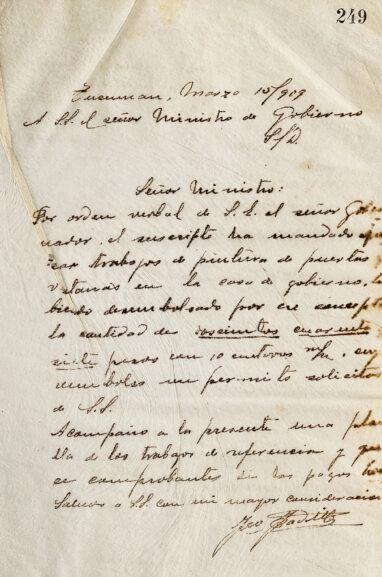 249
Tucuman, Marzo 15/909
A S.S. el señor Ministro de Gobierno
S/D.
Señor Ministro:
Por orden verbal de S. E. el señor Gober
nador, el suscripto ha mandado
trabajos de pintura de puertas
ventanas en la casa de gobierno,
biendo desembolsado por ese concepto
la cantidad de doscientos cuarenta
siete pesos con 10 centavos m/n, cuyo
reembolso me permito solicitar
de S.S.
Acompaño a la presente una pla
lla de los trabajos de referencia y
ce comprobantes de los pagos
Saludo a S.S. con mi mayor consideracion
Padilla